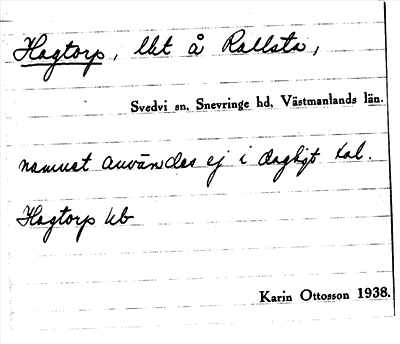 Hagtorp, lht å Rallsta,
Svedvi sn, Snevringe hd, Västmanlands län.
namnet användes ej i dagligt tal.
Hagtorp kb
Karin Ottosson 1938.